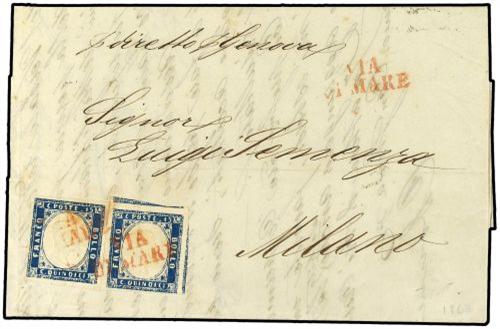 p diretto p Genova
VIA
DI MARE
Signor
Luigi Semenza
Milano
C. POSTE 15
FRANCO
BOLLO
C. QUINDICI
C. POSTE 15
FRANCO
BOLLO
C. QUINDICI
VIA
DI MARE